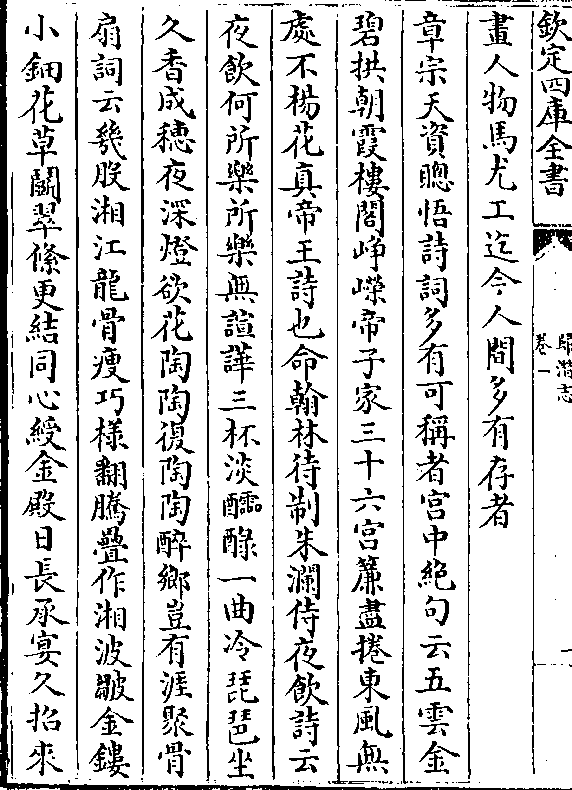 欽定四庫全書
歸潛志
卷一
一
畫人物馬尤工迄今人間多有存者
章宗天資聰悟詩詞多有可稱者宮中絕句云五雲金
碧拱朝霞樓閣崢嶸帝子家三十六宮簾盡捲東風無
處不楊花真帝王詩也命翰林待制朱瀾侍夜飲詩云
夜飲何所樂所樂無諠譁三杯淡醹醁一曲冷琵琶坐
久香成穗夜深燈欲花陶陶復陶陶醉鄉豈有涯聚骨
扇詞云幾股湘江龍骨瘦巧樣翻騰疊作湘波皺金鏤
小鈿花草鬭翠絛更結同心綬金殿日長承宴久招來